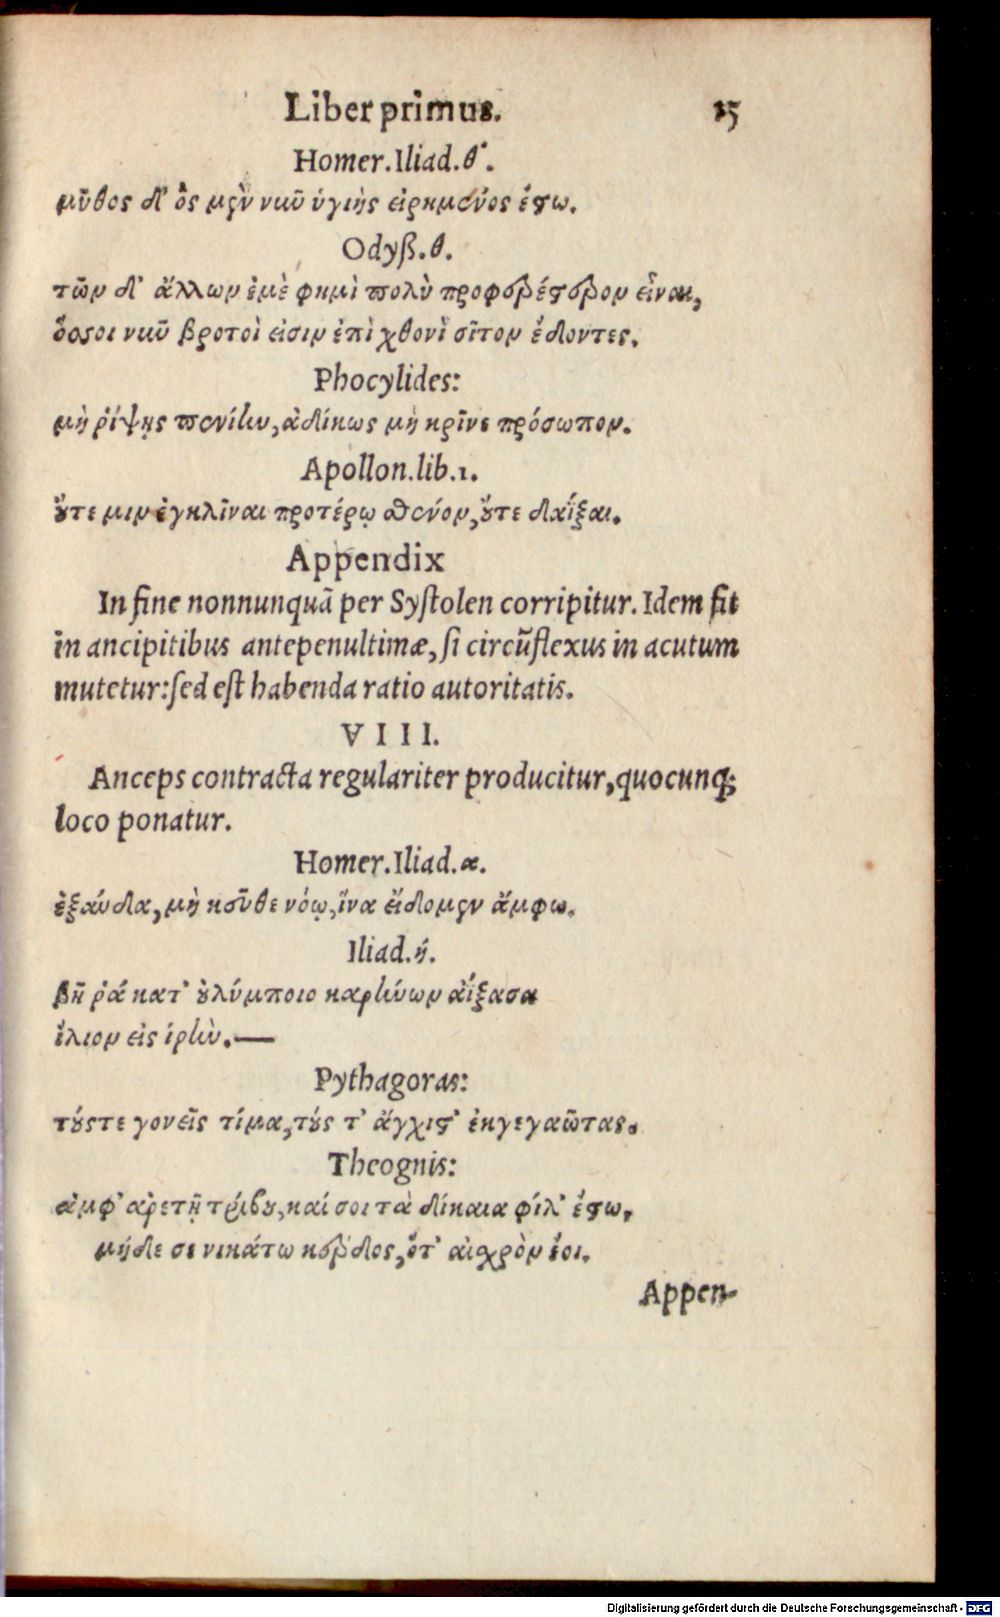 Liber primus. 15
Homer. Iliad. θ'.
μῦθος δ' ὃς μὲν νῦν ὑγιὴς εἰρημένος ἔστω.
Odyß. θ.
τῶν δ' ἄλλων ἐμὲ φημὶ πολὺ προφερέστερον εἶναι,
ὅσσοι νῦν βροτοὶ εἰσιν ἐπὶ χθονὶ σῖτον ἔδοντες.
Phocylides:
μὴ ῥίψῃς πενίην, ἀδίκως μὴ κρῖνε πρόσωπον.
Apollon. lib. 1.
οὔτε μιν ἐγκλῖναι προτέρῳ σθένον, οὔτε δαΐξαι.
Appendix
In fine nonnunquā per Systolen corripitur. Idem fit
in ancipitibus antepenultimæ, si circūflexus in acutum
mutetur: sed est habenda ratio autoritatis.
VIII.
Anceps contracta regulariter producitur, quocunq;
loco ponatur.
Homer. Iliad. α.
ἐξαύδα, μὴ κεῦθε νόῳ, ἵνα εἴδομεν ἄμφω.
Iliad. ή.
βῆ ῥά κατ' οὐλύμποιο καρήνων αἴξασα
ἴλιον εἰς ἱρὴν.—
Pythagoras:
τούς τε γονεῖς τίμα, τούς τ' ἄγχιστ' ἐκγεγαῶτας.
Theognis:
ἀμφ' ἀρετῇ τρίβου, καί σοι τὰ δίκαια φίλ' ἔστω,
μήδε σε νικάτω κέρδος, ὅτ' αἰσχρὸν ἔοι.
Appen-
Digitalisierung gefördert durch die Deutsche Forschungsgemeinschaft - DFG